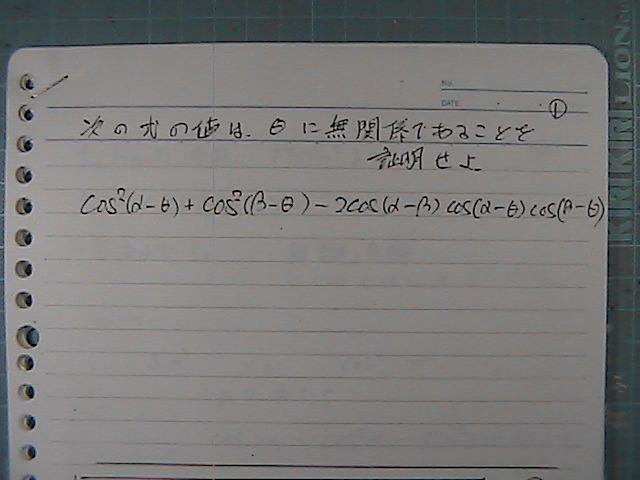 No.
DATE
①
次の式の値は、θに無関係であることを
証明せよ
cos²(α-θ) + cos²(β-θ) - 2cos(α-β) cos(α-θ) cos(β-θ)
KIRIRI LION